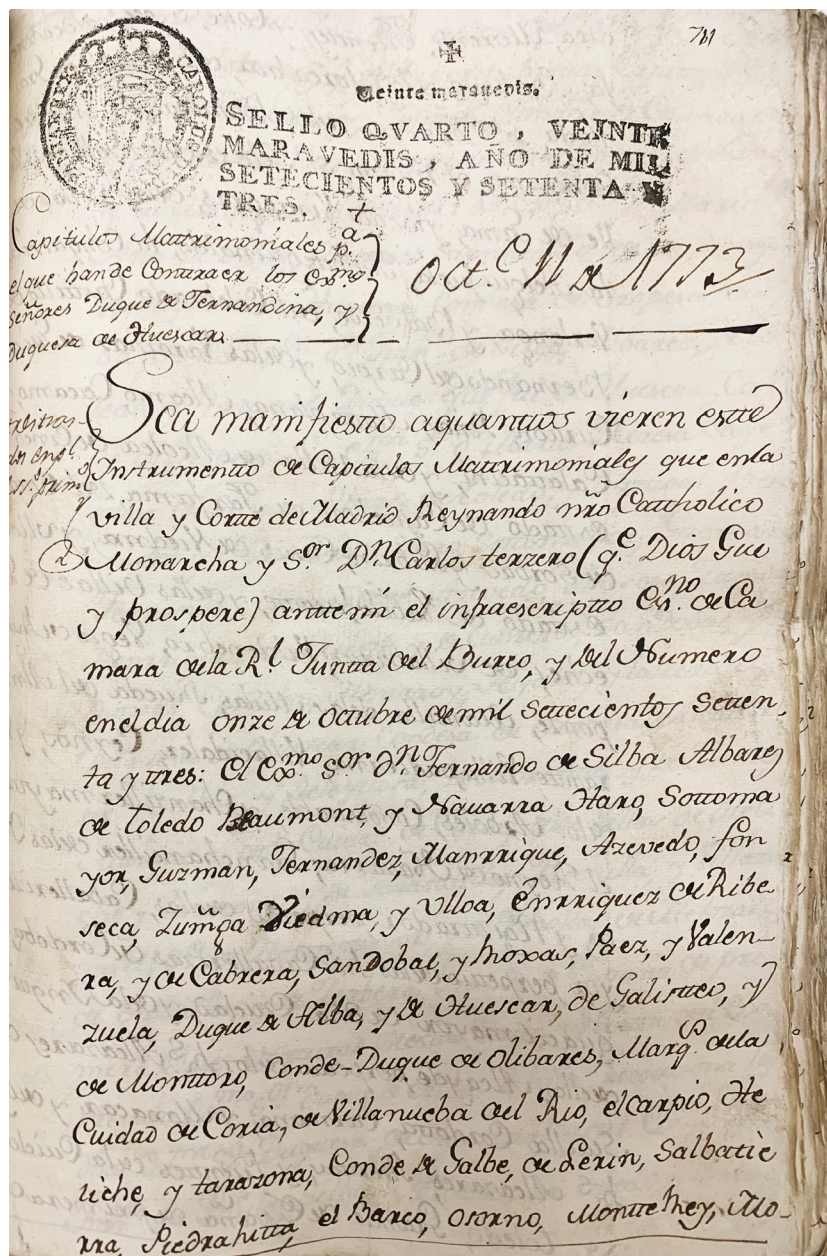 711
Veinte maravedis.
SELLO QVARTO, VEINTE
MARAVEDIS, AÑO DE MIL
SETECIENTOS Y SETENTA Y
TRES.
CAROLUS
Capitulos Mattrimoniales pª.
el que han de Conttraer los Exmos
Señores Duque de Fernandina, y
duquesa de Huescar
Octe. 11 de 1773
Sea manifiestto aquanttos vieren estte
Instrumentto de Capitulos Mattrimoniales que en la
villa y Cortte de Madrid Reynando nrõ Catthólico
Monarcha y Sor. Dn. Carlos terzero (qe. Dios Gue
y prospere) antte mi el infraescriptto Essno. de Ca
mara de la Rl. Juntta del Bureo, y del Numero
en el dia onze de octubre de mil Settecientos Setten,
ta y tres: El Exmo. Sor. Dn. Fernando de Silba Albarez
de toledo Beaumont, y Navarra Haro, Sottoma
yor, Guzman, Fernandez, Manrrique, Azevedo, fon
seca, Zuñiga Viedma, y Ulloa, Enrriquez de Ribe
ra, y de Cabrera, Sandobal, y Rroxas, Paez, y Valen-
zuela, Duque de Alba, y de Huescar, de Galistteo, y
de Monttoro, Conde-Duque de olibares, Marqs. de la
Cuidad de Coria, de Villanueba del Rio, el carpio, He
liche, y tarazona, Conde de Galbe, de Lerin, Salbatie
rra, Piedrahitta, el Barco, Osorno, Montterrey, Mo-